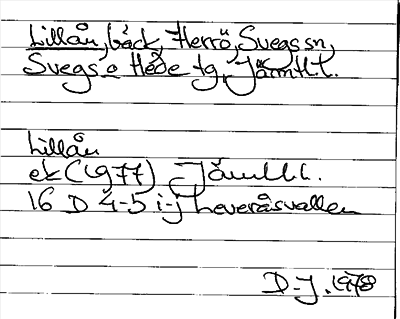 Lillån, bäck, Herrö, Svegs sn,
Svegs o Hede tg, Jämtl l.
Lillån
ek (1977) Jämtl l.
16 D 4-5 i-j Leveråsvallen
D-J. 1978